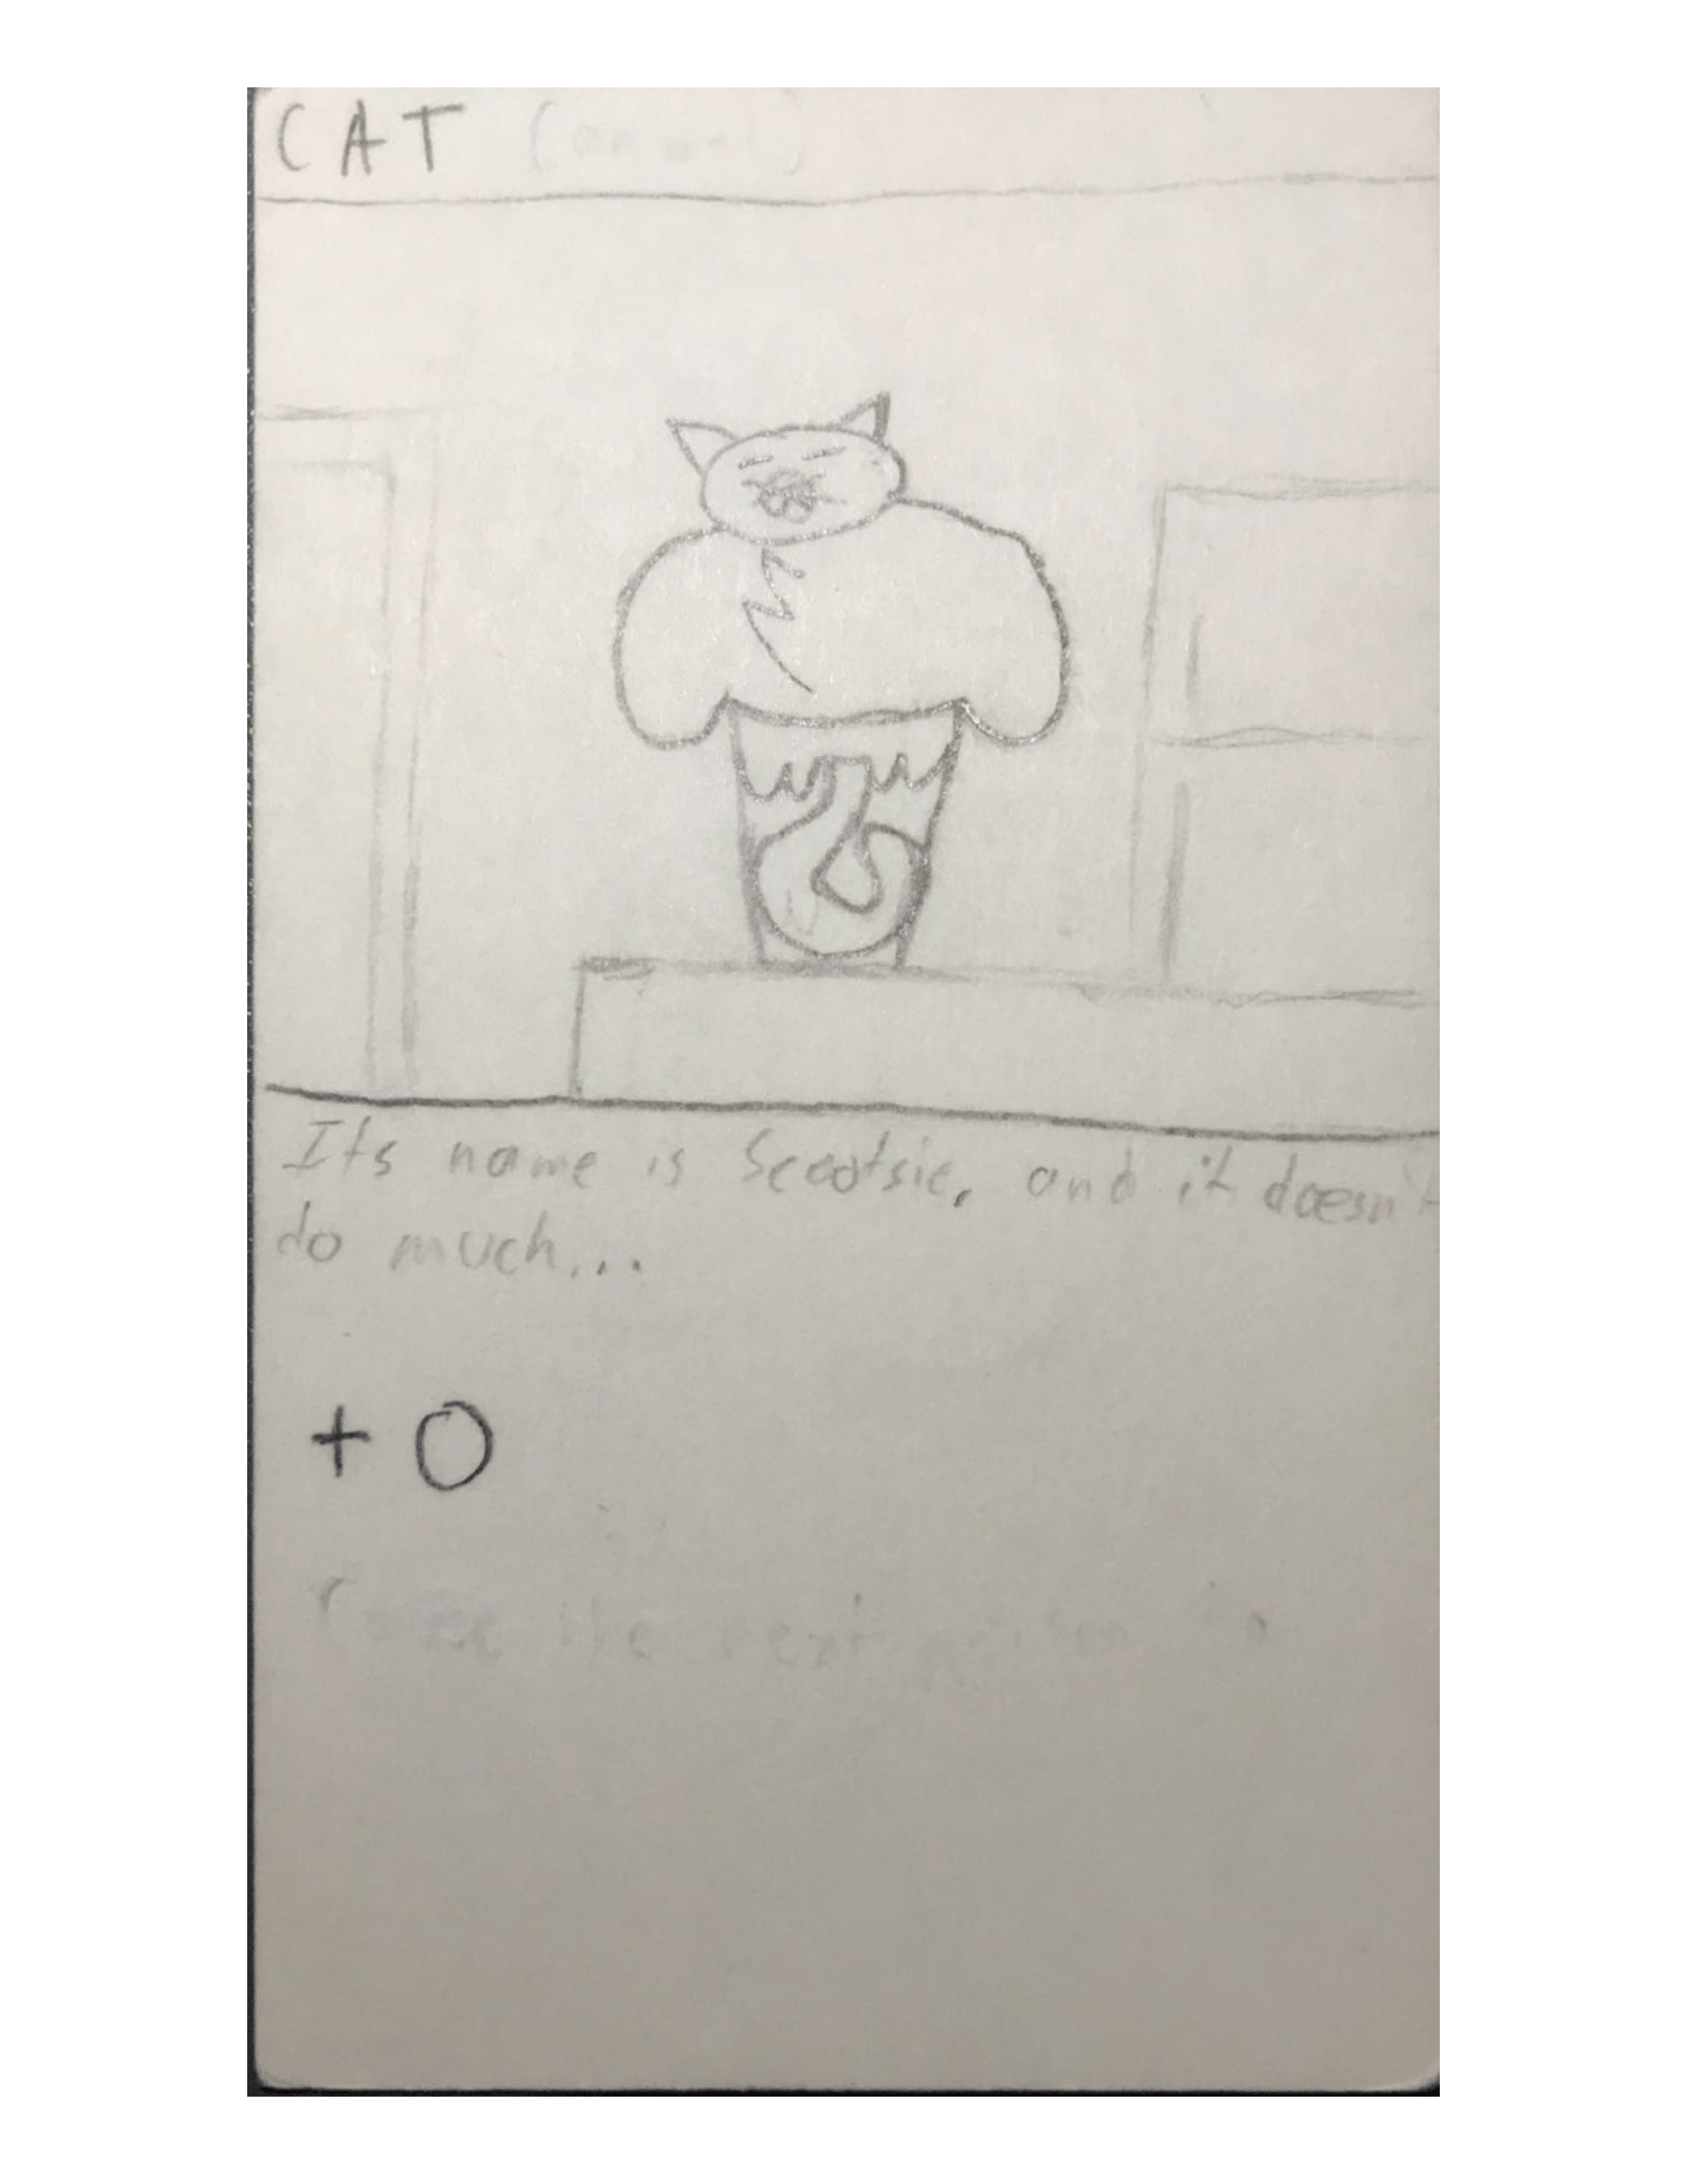 CAT
Its name is Scootsie, and it doesn't
do much...
+ 0
the next